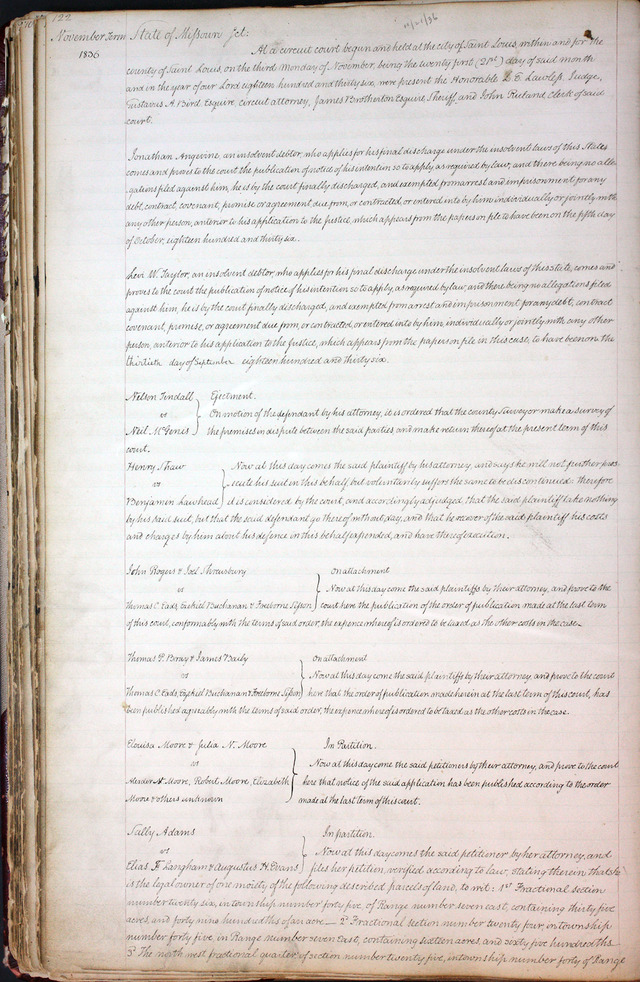 122
11/21/36
November Term State of Missouri Sct:
1836
At a circuit court begun and held at the city of Saint Louis, within and for the
county of Saint Louis, on the third Monday of November, being the twenty first (21st) day of said month
and in the year of our Lord eighteen hundred and thirty six, were present the Honorable L. E. Lawless, Judge,
Gustavus A. Bird Esquire circuit attorney, James Brotherton Esquire, Sheriff, and John Ruland Clerk of said
court.
Jonathan Angevine, an insolvent debtor, who applies for his final discharge under the insolvent laws of this State
comes and proves to the court the publication of notice of his intention so to apply, as required by law, and there being no alle-
gations filed against him, he is by the court finally discharged, and exempted from arrest and imprisonment for any
debt, contract, covenant, promise or agreement due from, or contracted, or entered into by him, individually or jointly with
any other person, anterior to his application to the Justice, which appears from the papers on file to have been on the fifth day
of October, eighteen hundred and thirty six.
Levi W. Taylor, an insolvent debtor, who applies for his final discharge under the insolvent laws of this state, comes and
proves to the court the publication of notice of his intention so to apply, as required by law, and there being no allegations filed
against him, he is by the court finally discharged, and exempted from arrest and imprisonment for any debt, contract
covenant, promise, or agreement due from, or contracted, or entered into by him, individually or jointly with any other
person, anterior to his application to the Justice, which appears from the papers on file in this case, to have been on the
thirtieth day of September eighteen hundred and thirty six.
Nelson Tindall } Ejectment.
vs On motion of the defendant by his attorney, it is ordered that the county Surveyor make a survey of
Neil McGenis the premises in dispute between the said parties, and make return thereof at the present term of this
court.
Henry Shaw } Now at this day comes the said plaintiff by his attorney, and says he will not further pros-
vs ecute his suit in this behalf, but voluntarily suffers the same to be discontinued: therefore
Benjamin Lawhead it is considered by the court, and accordingly adjudged, that the said plaintiff take nothing
by his said suit, but that the said defendant go thereof without day, and that he recover of the said plaintiff his costs
and charges by him about his defence in this behalf expended, and have thereof execution.
John Rogers & Joel Shrewsbury } on attachment
vs Now at this day come the said plaintiffs by their attorney, and prove to the
Thomas C. Eads, Ezekiel Buchanan & Freeborne Sisson court here the publication of the order of publication made at the last term
of this court, conformably with the terms of said order, the expence whereof is ordered to be taxed as the other costs in the case.
Thomas P. Bray & James Baily } on attachment
vs Now at this day come the said plaintiffs by their attorney, and prove to the court
Thomas C. Eads, Ezekiel Buchanan & Freeborne Sisson here that the order of publication made herein at the last term of this court, has
been published agreeably with the terms of said order, the expence whereof is ordered to be taxed as the other costs in the case.
Elouisa Moore & Julia N. Moore } In Partition.
vs Now at this day come the said petitioners by their attorney, and prove to the court
N. Moore, Robert Moore, Elizabeth here that notice of the said application has been published according to the order
Moore & others unknown made at the last term of this court.
Sally Adams } In partition.
vs Now at this day comes the said petitioner by her attorney, and
Elias T. Langham & Augustus H. Evans files her petition, verified according to law, stating therein that she
is the legal owner of one moiety of the following described parcels of land, to wit: 1st Fractional section
number twenty six, in township number forty five, of Range number seven east, containing thirty five
acres, and forty nine hundredths of an acre — 2d Fractional section number twenty four, in township
number forty five, in Range number seven East, containing sixteen acres, and sixty five hundredths —
3d The north west fractional quarter of section number twenty five, in township number forty of Range